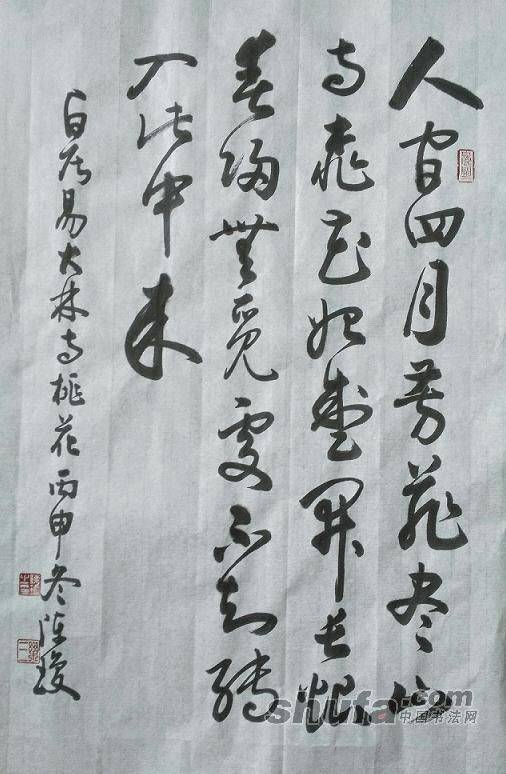 人間四月芳菲尽山
寺桃花始盛開長恨
春歸無覓處不知轉
入此中来
白居易大林寺桃花丙申冬陈瓊
shufa.com
中国书法网